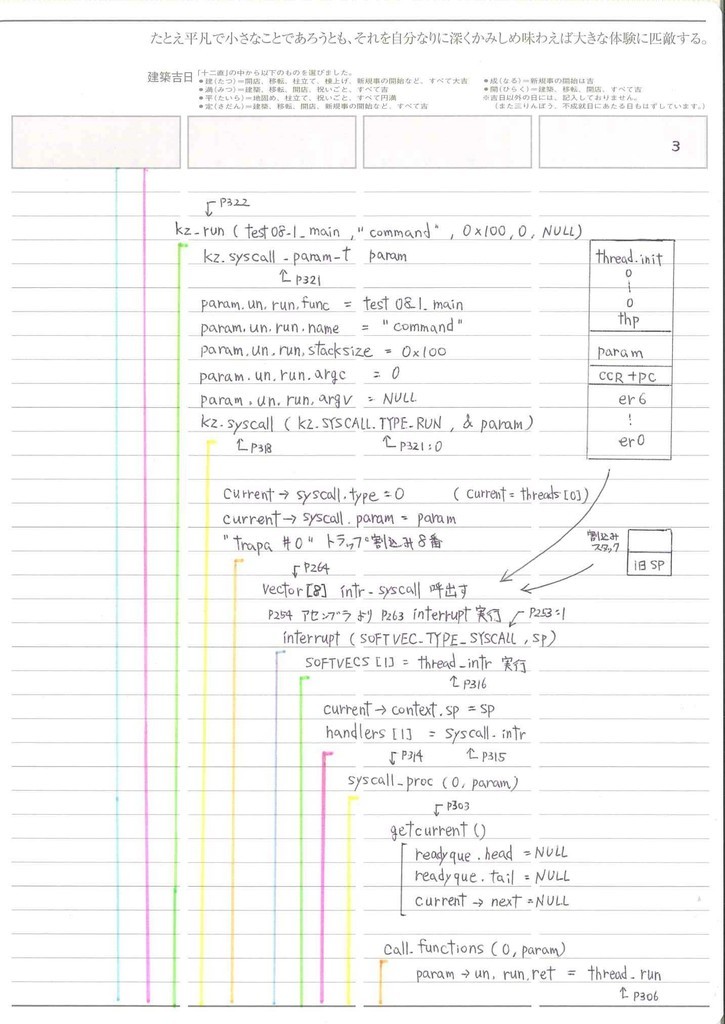 たとえ平凡で小さなことであろうとも、それを自分なりに深くかみしめ味わえば大きな体験に匹敵する。
建築吉日
「十二直」の中から以下のものを選びました。
●建(たつ)=開店、移転、柱立て、棟上げ、新規事の開始など、すべて大吉
●満(みつ)=建築、移転、開店、祝いごと、すべて吉
●平(たいら)=地固め、柱立て、祝いごと、すべて円満
●定(さだん)=建築、移転、開店、新規事の開始など、すべて吉
●成(なる)=新規事の開始は吉
●開(ひらく)=建築、移転、開店、すべて吉
※吉日以外の日には、記入しておりません。
(また三りんぼう、不成就日にあたる日もはずしています。)
3
P322
kz_run ( test08_1_main , "command" , 0x100, 0, NULL)
kz_syscall_param_t param
P321
param.un.run.func = test 08_1_main
param.un.run.name = "command"
param.un.run.stacksize = 0x100
param.un.run.argc = 0
param.un.run.argv = NULL
kz_syscall ( KZ_SYSCALL_TYPE_RUN , & param)
P318
P321:0
thread_init
0
1
0
thp
param
CCR+PC
er6
!
er0
current → syscall.type = 0 ( current = threads[0])
current → syscall.param = param
"trapa #0" トラップ割込み8番
割込み
スタック
旧SP
P264
vector[8] intr_syscall 呼出す
P254 アセンブラより P263 interrupt 実行
P253:1
interrupt ( SOFTVEC_TYPE_SYSCALL, sp)
SOFTVECS [1] = thread_intr 実行
P316
current → context.sp = sp
handlers [1] = syscall_intr
P314
P315
syscall_proc (0, param)
P303
getcurrent ()
readyque.head = NULL
readyque.tail = NULL
current → next = NULL
call_functions (0, param)
param → un.run.ret = thread_run
P306